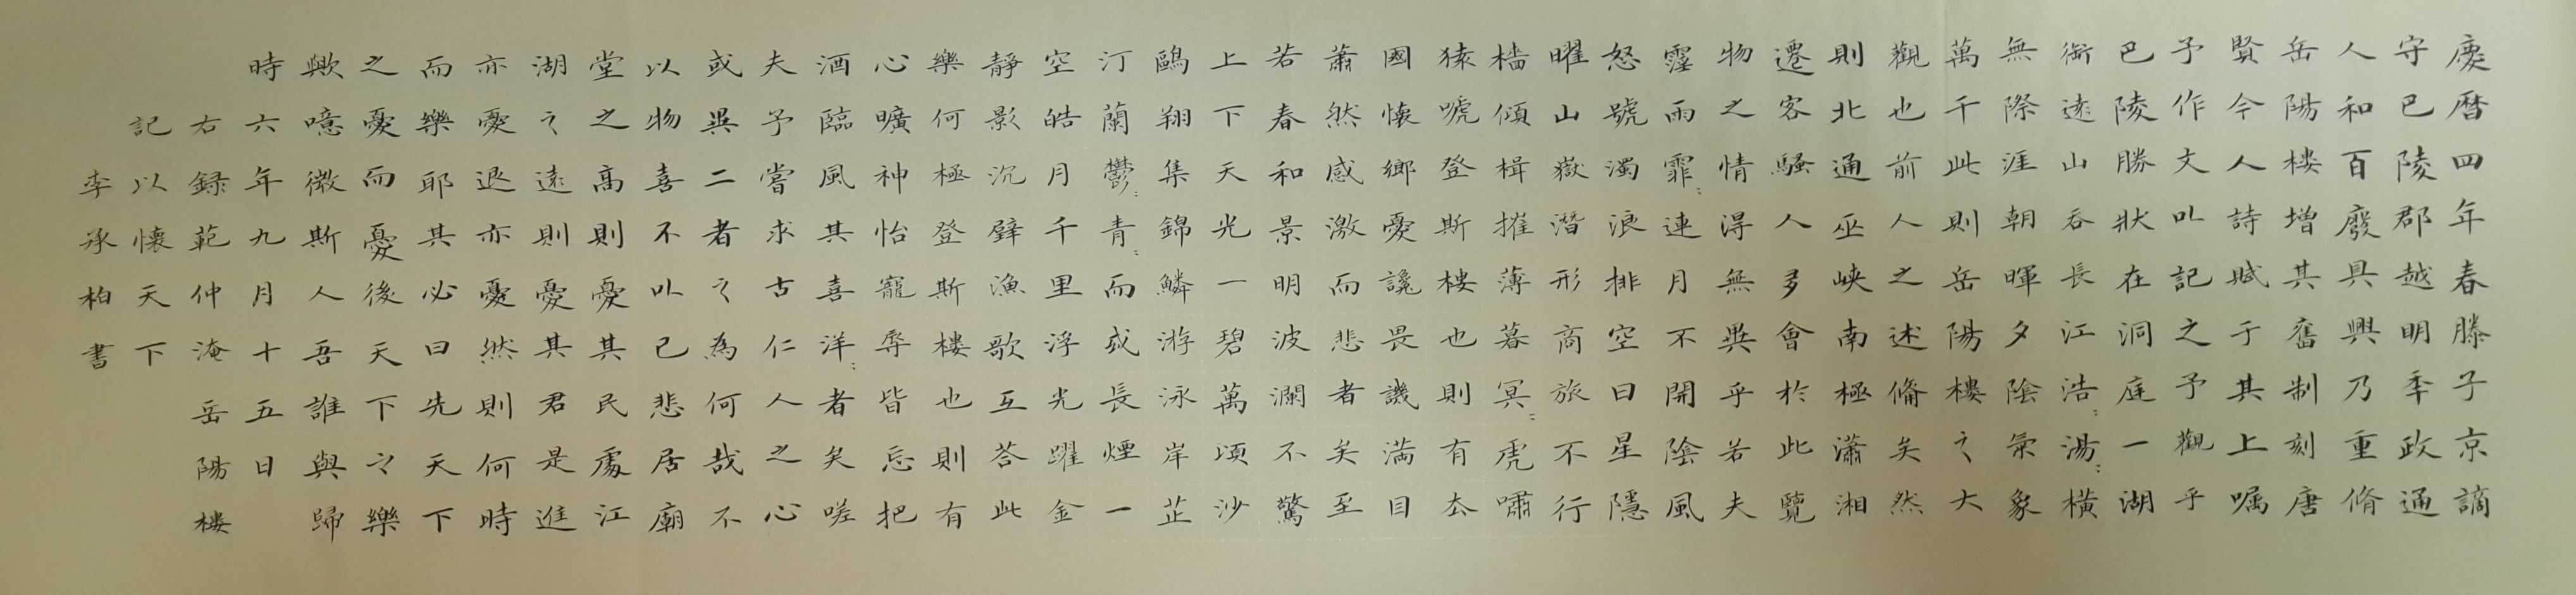 慶曆四年春滕子京謫
守巴陵郡越明年政通
人和百廢具興乃重脩
岳陽樓增其舊制刻唐
賢今人詩賦于其上嘱
予作文㕥記之予觀乎
巴陵勝狀在洞庭一湖
銜遠山吞長江浩〻湯〻橫
無際涯朝暉夕陰氣象
萬千此則岳陽樓之大
觀也前人之述備矣然
則北通巫峽南極瀟湘
遷客騷人多會於此覽
物之情得無異乎若夫
霪雨霏〻連月不開陰風
怒號濁浪排空日星隱
曜山嶽潛形商旅不行
檣傾楫摧薄暮冥〻虎嘯
猿唬登斯樓也則有去
國懷鄉憂讒畏譏滿目
蕭然感激而悲者矣至
若春和景明波瀾不驚
上下天光一碧萬頃沙
鷗翔集錦鱗游泳岸芷
汀蘭鬱〻青〻而或長煙一
空皓月千里浮光躍金
靜影沉璧漁歌互答此
樂何極登斯樓也則有
心曠神怡寵辱皆忘把
酒臨風其喜洋〻者矣嗟
夫予嘗求古仁人之心
或異二者之為何哉不
以物喜不㕥己悲居廟
堂之高則憂其民處江
湖之遠則憂其君是進
亦憂退亦憂然則何時
而樂耶其必曰先天下
之憂而憂後天下之樂
歟噫微斯人吾誰與歸
時六年九月十五日
右録范仲淹岳陽樓
記以懷天下
李承柏書